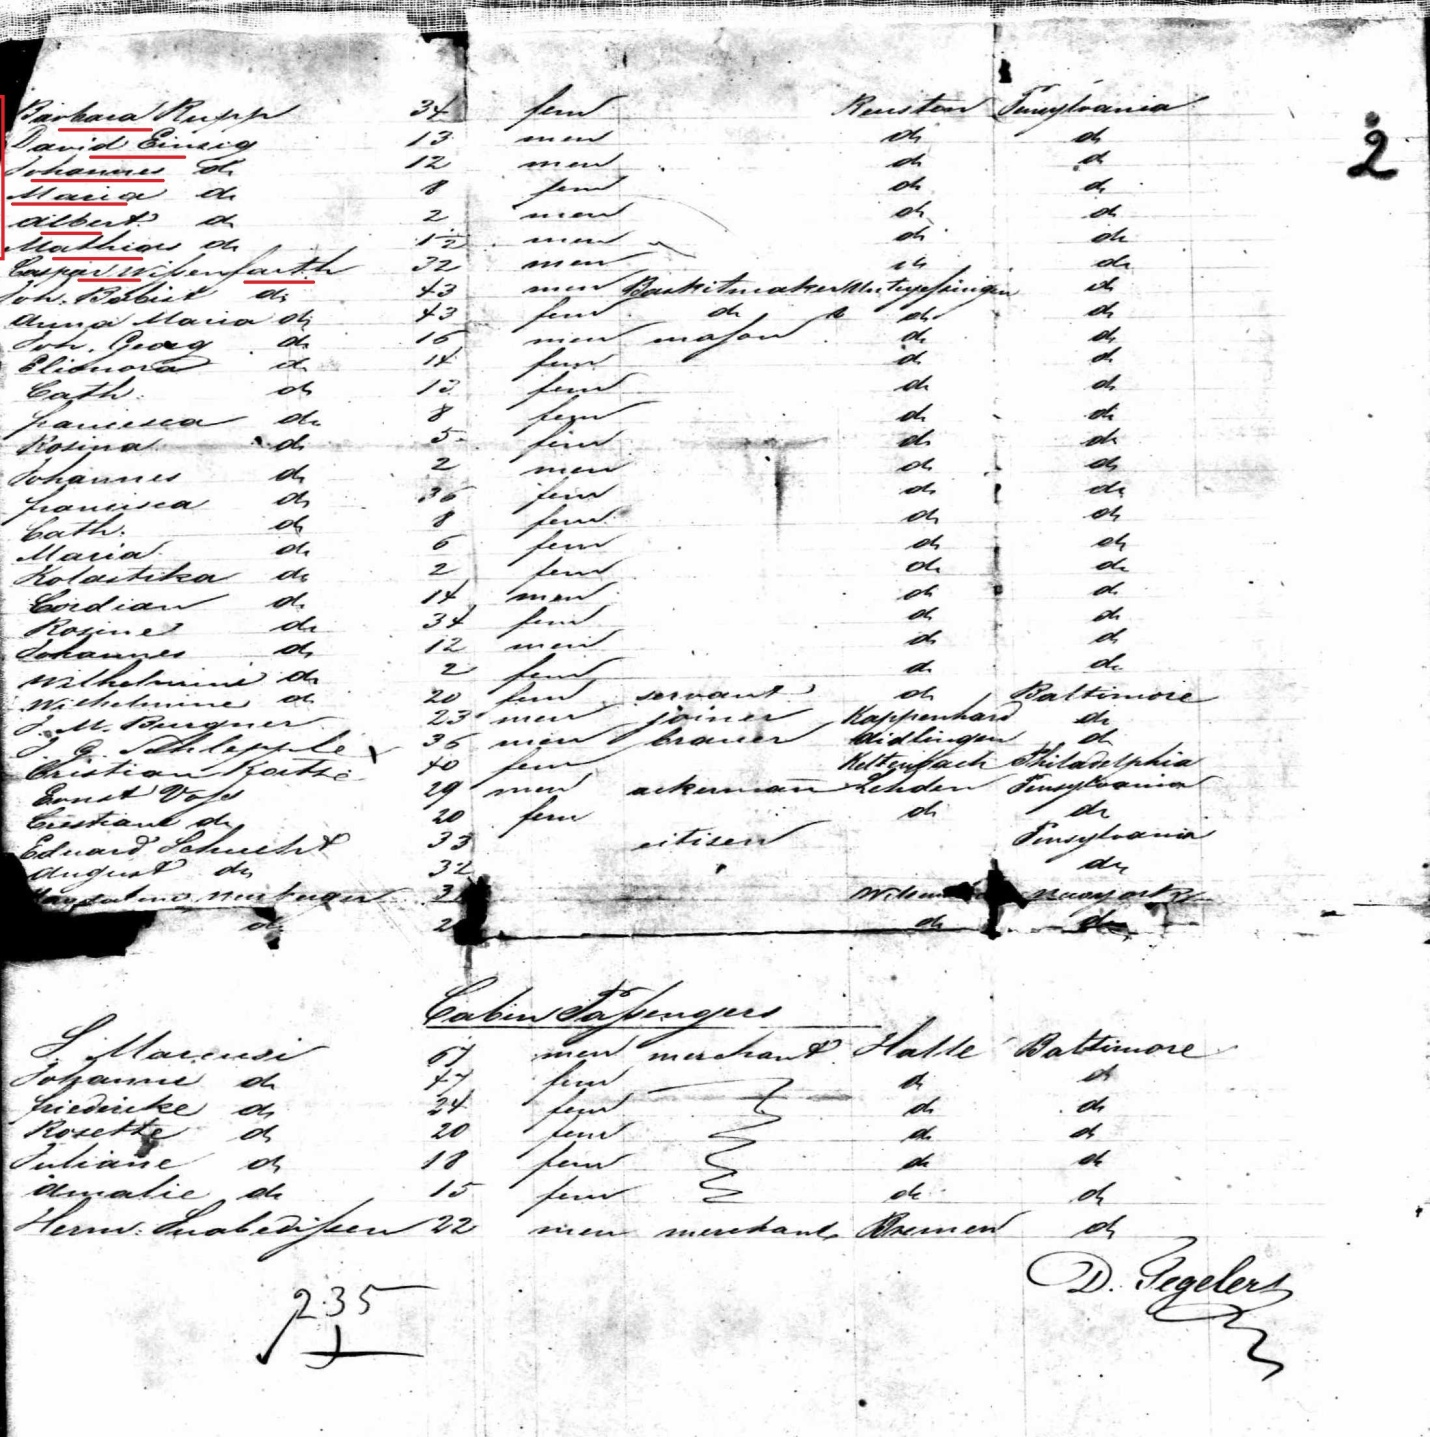 2
Barbara Rupp 34 fem Renston Pensylvania
David Einsig 13 men do do
Johannes do 12 men do do
Maria do 8 fem do do
Albert do 2 men do do
Mathias do 1/2 men do do
Caspar Wisenfarth 32 men do do
Joh. Babist do 43 men Baskitmaker do
Anna Maria do 43 fem do do do
Joh. Georg do 16 men mason do do
Elionora do 14 fem do do
Cath: do 13 fem do do
francisca do 8 fem do do
Rosina do 5 fem do do
Johannes do 2 men do do
francisca do 36 fem do do
Cath. do 8 fem do do
Maria do 6 fem do do
Kolastika do 2 fem do do
Cordian do 14 men do do
Rosine do 34 fem do do
Johannes do 12 men do do
Wilhelmine do 2 fem do do
Wilhelmine do 20 fem servant do Baltimore
J. M. Burgner 23 men joiner Kappenhard do
J. G. Schlepple 36 men brauer Aidlingen do
Cristian 40 fem Philadelphia
Ernst Voss 29 men ackermann Lehden Pensylvania
Crestiane do 20 fem do do
Eduard Schucht 33 citisen Pensylvania
August do 32 do
3 Newyork
do 2 do do
Cabin Passengers
S. Marcusi 67 men merchant Halle Baltimore
Johanne do 47 fem do do
friedericke do 24 fem do do
Rosette do 20 fem do do
Juliane do 18 fem do do
Amalie do 15 fem do do
Herm: Suabedissen 22 men merchant Bremen do
D. Segelers
235